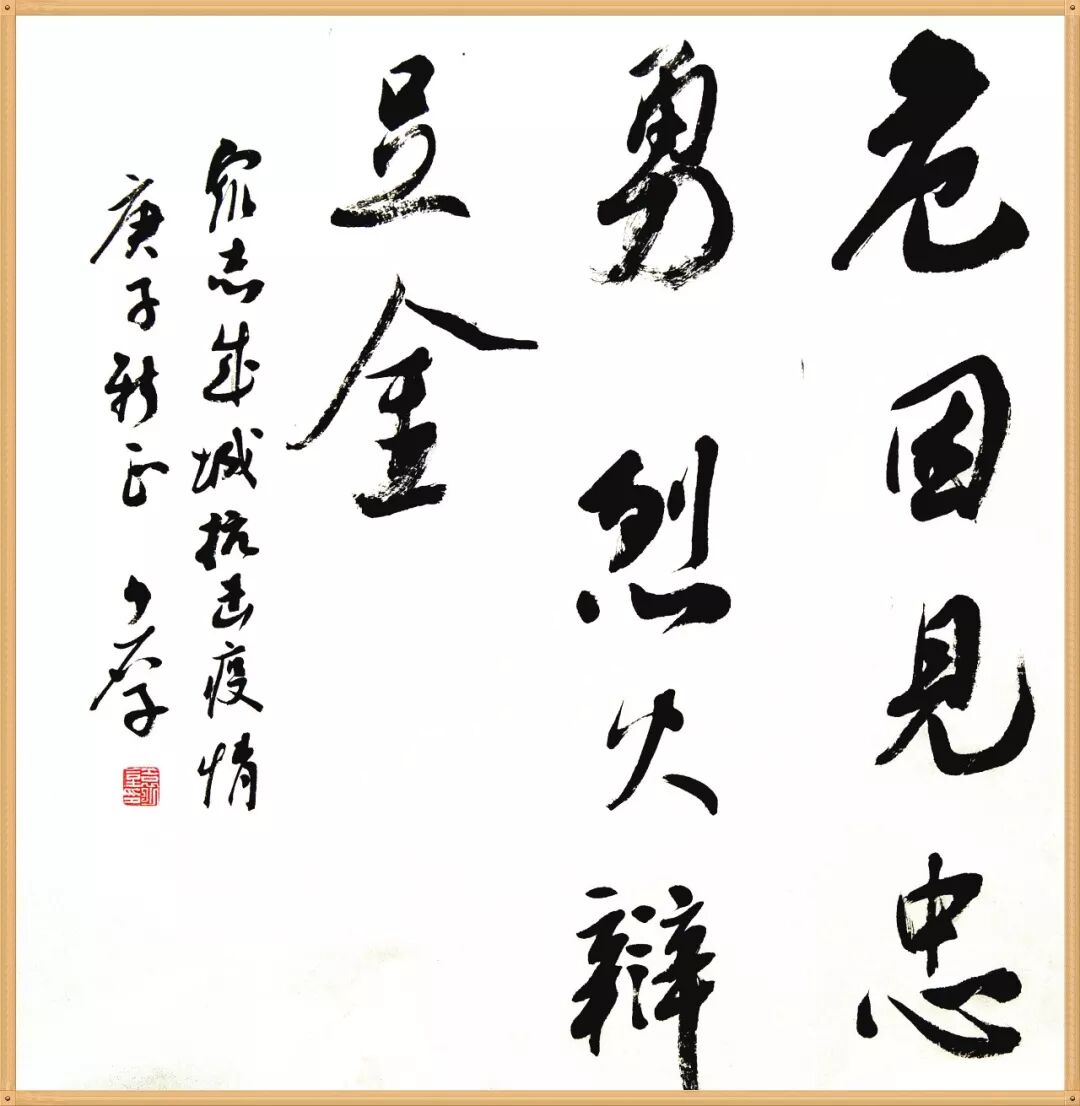 危困見忠
勇烈火辩
真金
众志成城抗击疫情
庚子新正